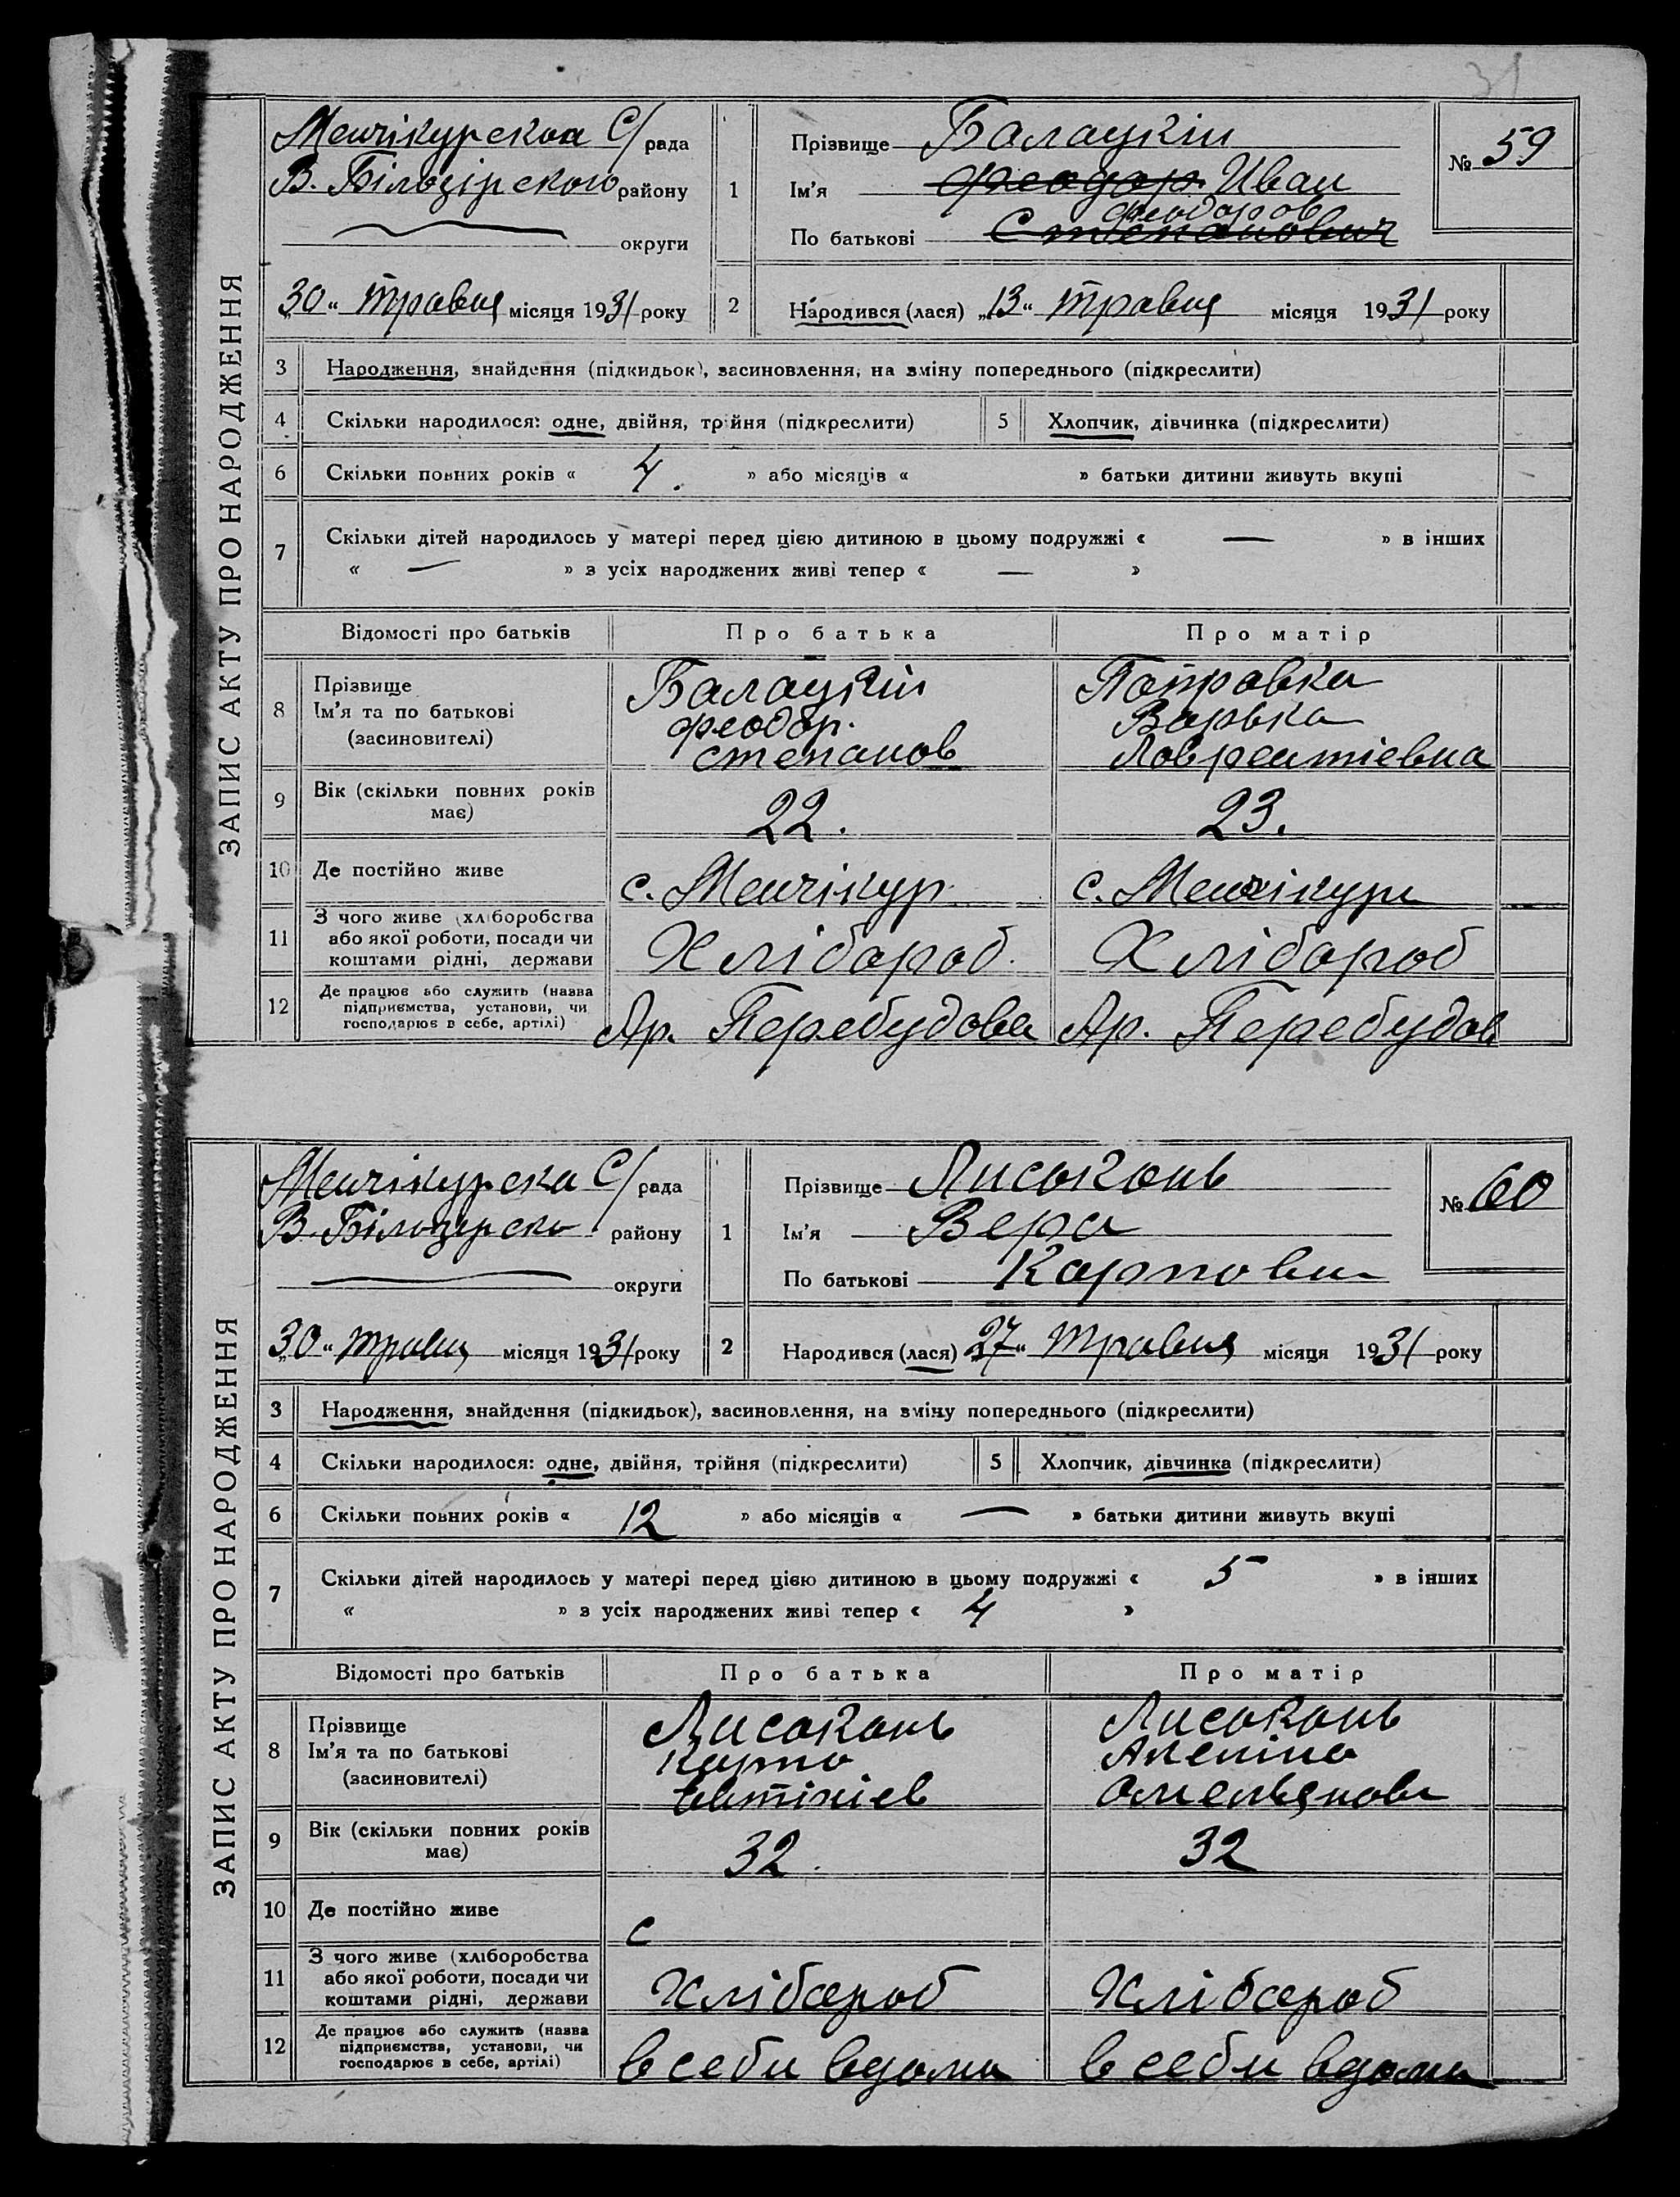 31
ЗАПИС АКТУ ПРО НАРОДЖЕННЯ
Менчікурскоа С/рада
В. Білозірского району
округи
„30“ травня місяця 1931 року
1
Прізвище Балацкій
Ім'я Феодор Иван
Феодоров
По батькові Степанович
№ 59
2 Народився (лася) „13“ травня місяця 1931 року
3 Народження, знайдення (підкидьок), засиновлення, на зміну попереднього (підкреслити)
4 Скільки народилося: одне, двійня, трійня (підкреслити) 5 Хлопчик, дівчинка (підкреслити)
6 Скільки повних років « 4. » або місяців « » батьки дитини живуть вкупі
7 Скільки дітей народилось у матері перед цією дитиною в цьому подружжі « — » в інших
« — » з усіх народжених живі тепер « — »
Відомості про батьків Про батька Про матір
8 Прізвище Ім'я та по батькові (засиновителі)
Балацкій Феодор. Степанов
Варька Лаврентіевна
9 Вік (скільки повних років має) 22. 23.
10 Де постійно живе с. Менчікур с. Менчікури
11 З чого живе (хліборобства або якої роботи, посади чи коштами рідні, держави Хлібороб. Хлібороб
12 Де працює або служить (назва підприємства, установи, чи господарює в себе, артілі) Ар. Перебудова Ар. Перебудов
ЗАПИС АКТУ ПРО НАРОДЖЕННЯ
Менчікурска С/рада
В. Білозірско району
округи
„30“ травня місяця 1931 року
1
Прізвище Лисоконь
Ім'я Вера
По батькові Карповн
№ 60
2 Народився (лася) 27“ травня місяця 1931 року
3 Народження, знайдення (підкидьок), засиновлення, на зміну попереднього (підкреслити)
4 Скільки народилося: одне, двійня, трійня (підкреслити) 5 Хлопчик, дівчинка (підкреслити)
6 Скільки повних років « 12 » або місяців « — » батьки дитини живуть вкупі
7 Скільки дітей народилось у матері перед цією дитиною в цьому подружжі « 5 » в інших
« » з усіх народжених живі тепер « 4 »
Відомості про батьків Про батька Про матір
8 Прізвище Ім'я та по батькові (засиновителі)
Лисоконь Карпо
Лисоконь Омельяновн
9 Вік (скільки повних років має) 32. 32
10 Де постійно живе с
11 З чого живе (хліборобства або якої роботи, посади чи коштами рідні, держави Хлібароб Хлібароб
12 Де працює або служить (назва підприємства, установи, чи господарює в себе, артілі) в себи вдома в себи вдома